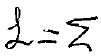 L = Σ